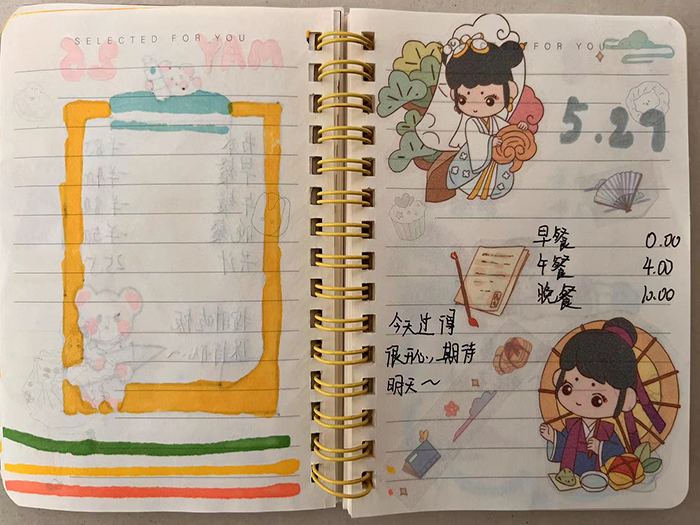 SELECTED FOR YOU
FOR YOU
5.29
早餐 0.00
午餐 4.00
晚餐 10.00
今天过得
很开心,期待
明天~